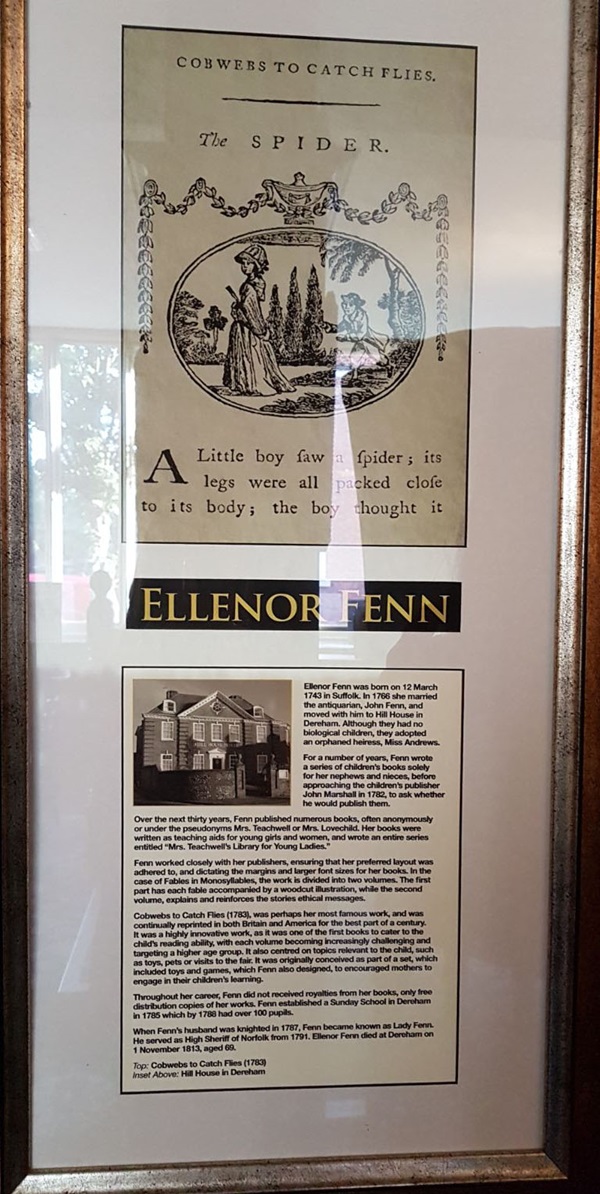 COBWEBS TO CATCH FLIES.
The SPIDER.
A Little boy ſaw a ſpider; its
legs were all packed cloſe
to its body; the boy thought it
ELLENOR FENN
Ellenor Fenn was born on 12 March
1743 in Suffolk. In 1766 she married
the antiquarian, John Fenn, and
moved with him to Hill House in
Dereham. Although they had no
biological children, they adopted
an orphaned heiress, Miss Andrews.
For a number of years, Fenn wrote
a series of children's books solely
for her nephews and nieces, before
approaching the children's publisher
John Marshall in 1782, to ask whether
he would publish them.
Over the next thirty years, Fenn published numerous books, often anonymously
or under the pseudonyms Mrs. Teachwell or Mrs. Lovechild. Her books were
written as teaching aids for young girls and women, and wrote an entire series
entitled “Mrs. Teachwell's Library for Young Ladies.”
Fenn worked closely with her publishers, ensuring that her preferred layout was
adhered to, and dictating the margins and larger font sizes for her books. In the
case of Fables in Monosyllables, the work is divided into two volumes. The first
part has each fable accompanied by a woodcut illustration, while the second
volume, explains and reinforces the stories ethical messages.
Cobwebs to Catch Flies (1783), was perhaps her most famous work, and was
continually reprinted in both Britain and America for the best part of a century.
It was a highly innovative work, as it was one of the first books to cater to the
child's reading ability, with each volume becoming increasingly challenging and
targeting a higher age group. It also centred on topics relevant to the child, such
as toys, pets or visits to the fair. It was originally conceived as part of a set, which
included toys and games, which Fenn also designed, to encouraged mothers to
engage in their children's learning.
Throughout her career, Fenn did not received royalties from her books, only free
distribution copies of her works. Fenn established a Sunday School in Dereham
in 1785 which by 1788 had over 100 pupils.
When Fenn's husband was knighted in 1787, Fenn became known as Lady Fenn.
He served as High Sheriff of Norfolk from 1791. Ellenor Fenn died at Dereham on
1 November 1813, aged 69.
Top: Cobwebs to Catch Flies (1783)
Inset Above: Hill House in Dereham